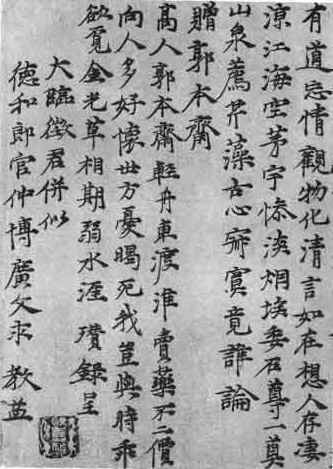 有道忘情觀物化清言如在想人存凄
涼江海空茅宇慘淡烟埃委石尊一奠
山泉薦芹藻古心寂寞竟誰論
贈郭本齋
高人郭本齋輕舟東渡淮賣藥不二價
向人多好懷世方憂暍死我豈與時乖
欲覓金光草相期弱水涯瓚錄呈
大臨徵君併似
德和郎官仲博廣文求教益